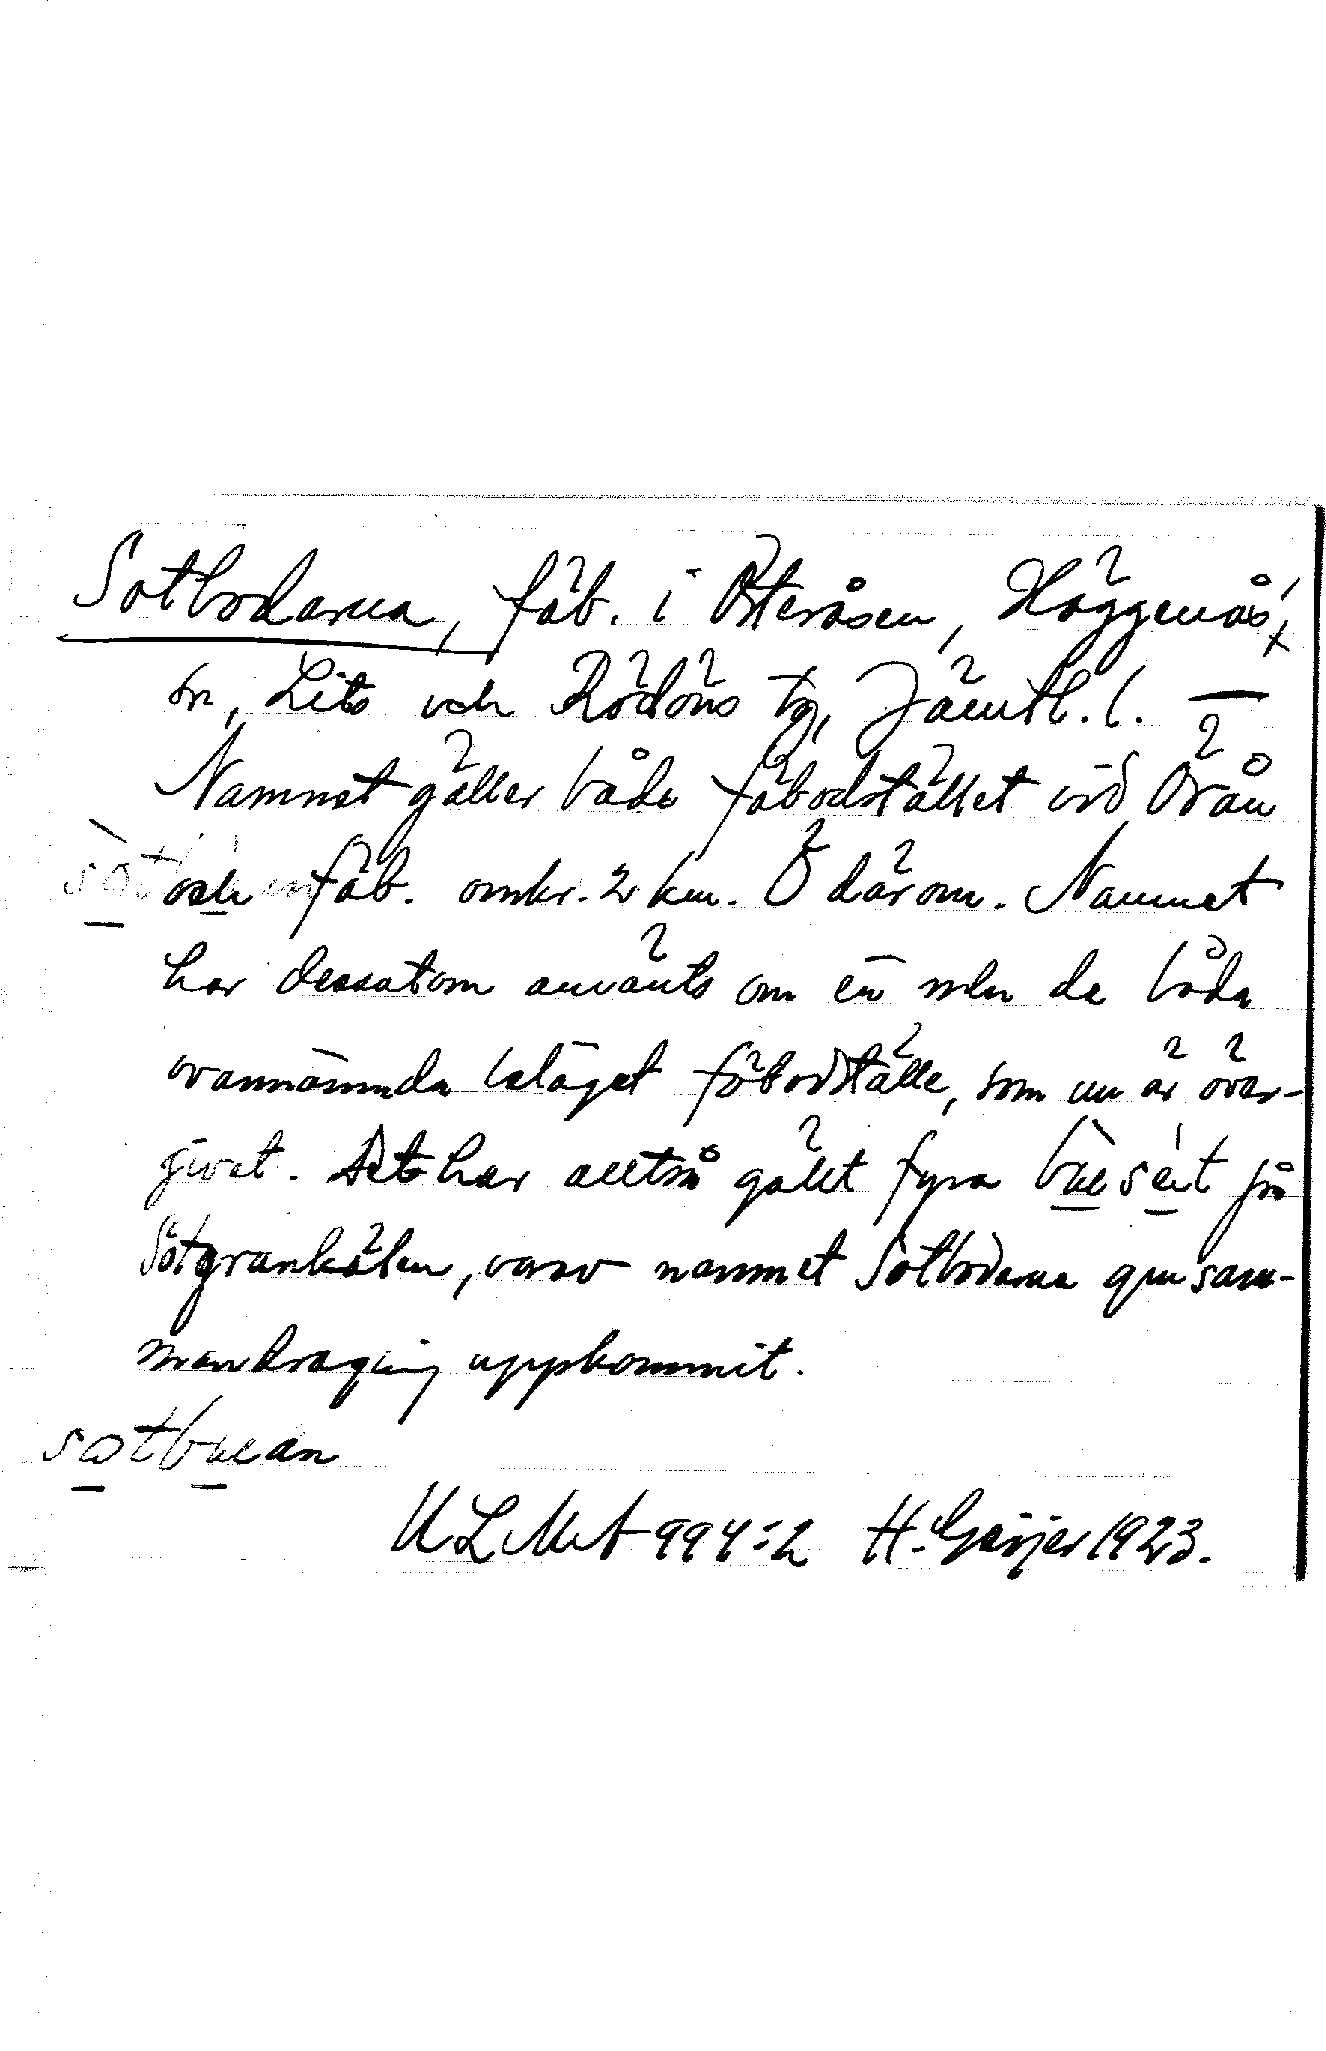 Sotbodarna, fäb. i Österåsen, Häggenås,
sn, Lits och Rödöns tg, Jämtl. l. —
Namnet gäller både fäbodstället vid Öråån
och fäb. omkr. 2 km. Ö därom. Namnet
har dessutom använts om en mln de båda
ovannämnda beläget fäbodställe, som nu är över-
givet. Det har alltså gällt fyra på
Sotgrankälen, varav namnet Sotbodarna gm sam-
mandraging uppkommit.
sotbuean
ULMA 994:2 H. Geijer 1923.